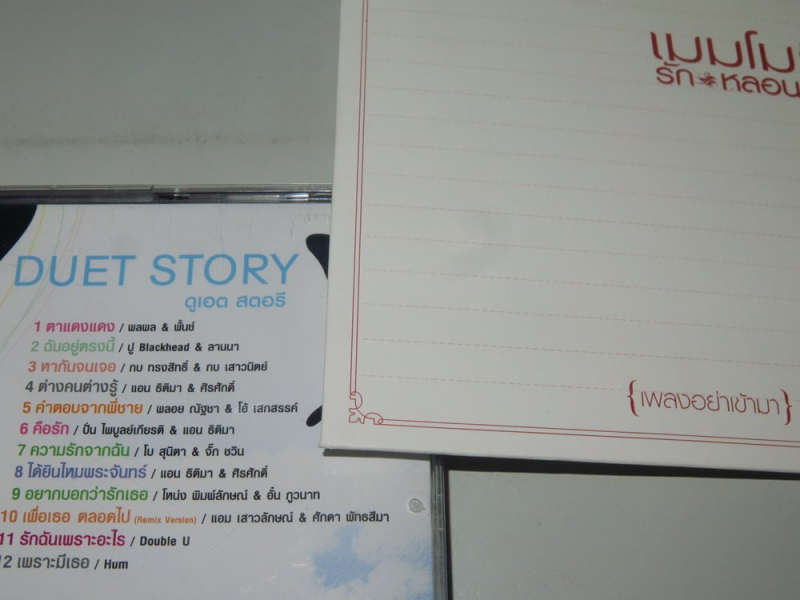 เมมโม
รัก หลอน
DUET STORY
ดูเอต สตอรี
1 ตาแดงแดง / พลพล & พั้นช์
2 ฉันอยู่ตรงนี้ / ปู Blackhead & ลานนา
3 หากันจนเจอ / กบ ทรงสิทธิ์ & กบ เสาวนิตย์
4 ต่างคนต่างรู้ / แอน ธิติมา & ศิรศักดิ์
5 คำตอบจากพี่ชาย / พลอย ณัฐชา & โอ้ เสกสรรค์
6 คือรัก / ปิ่น ไพบูลย์เกียรติ & แอน ธิติมา
7 ความรักจากฉัน / โบ สุนิตา & จั๊ก ชวิน
8 ได้ยินไหมพระจันทร์ / แอน ธิติมา & ศิรศักดิ์
9 อยากบอกว่ารักเธอ / โหน่ง พิมพ์ลักษณ์ & อั๋น ภูวนาท
10 เพื่อเธอ ตลอดไป (Remix Version) / แอม เสาวลักษณ์ & ศักดา พัทธสีมา
11 รักฉันเพราะอะไร / Double U
12 เพราะมีเธอ / Hum
{เพลงอย่าเข้ามา}